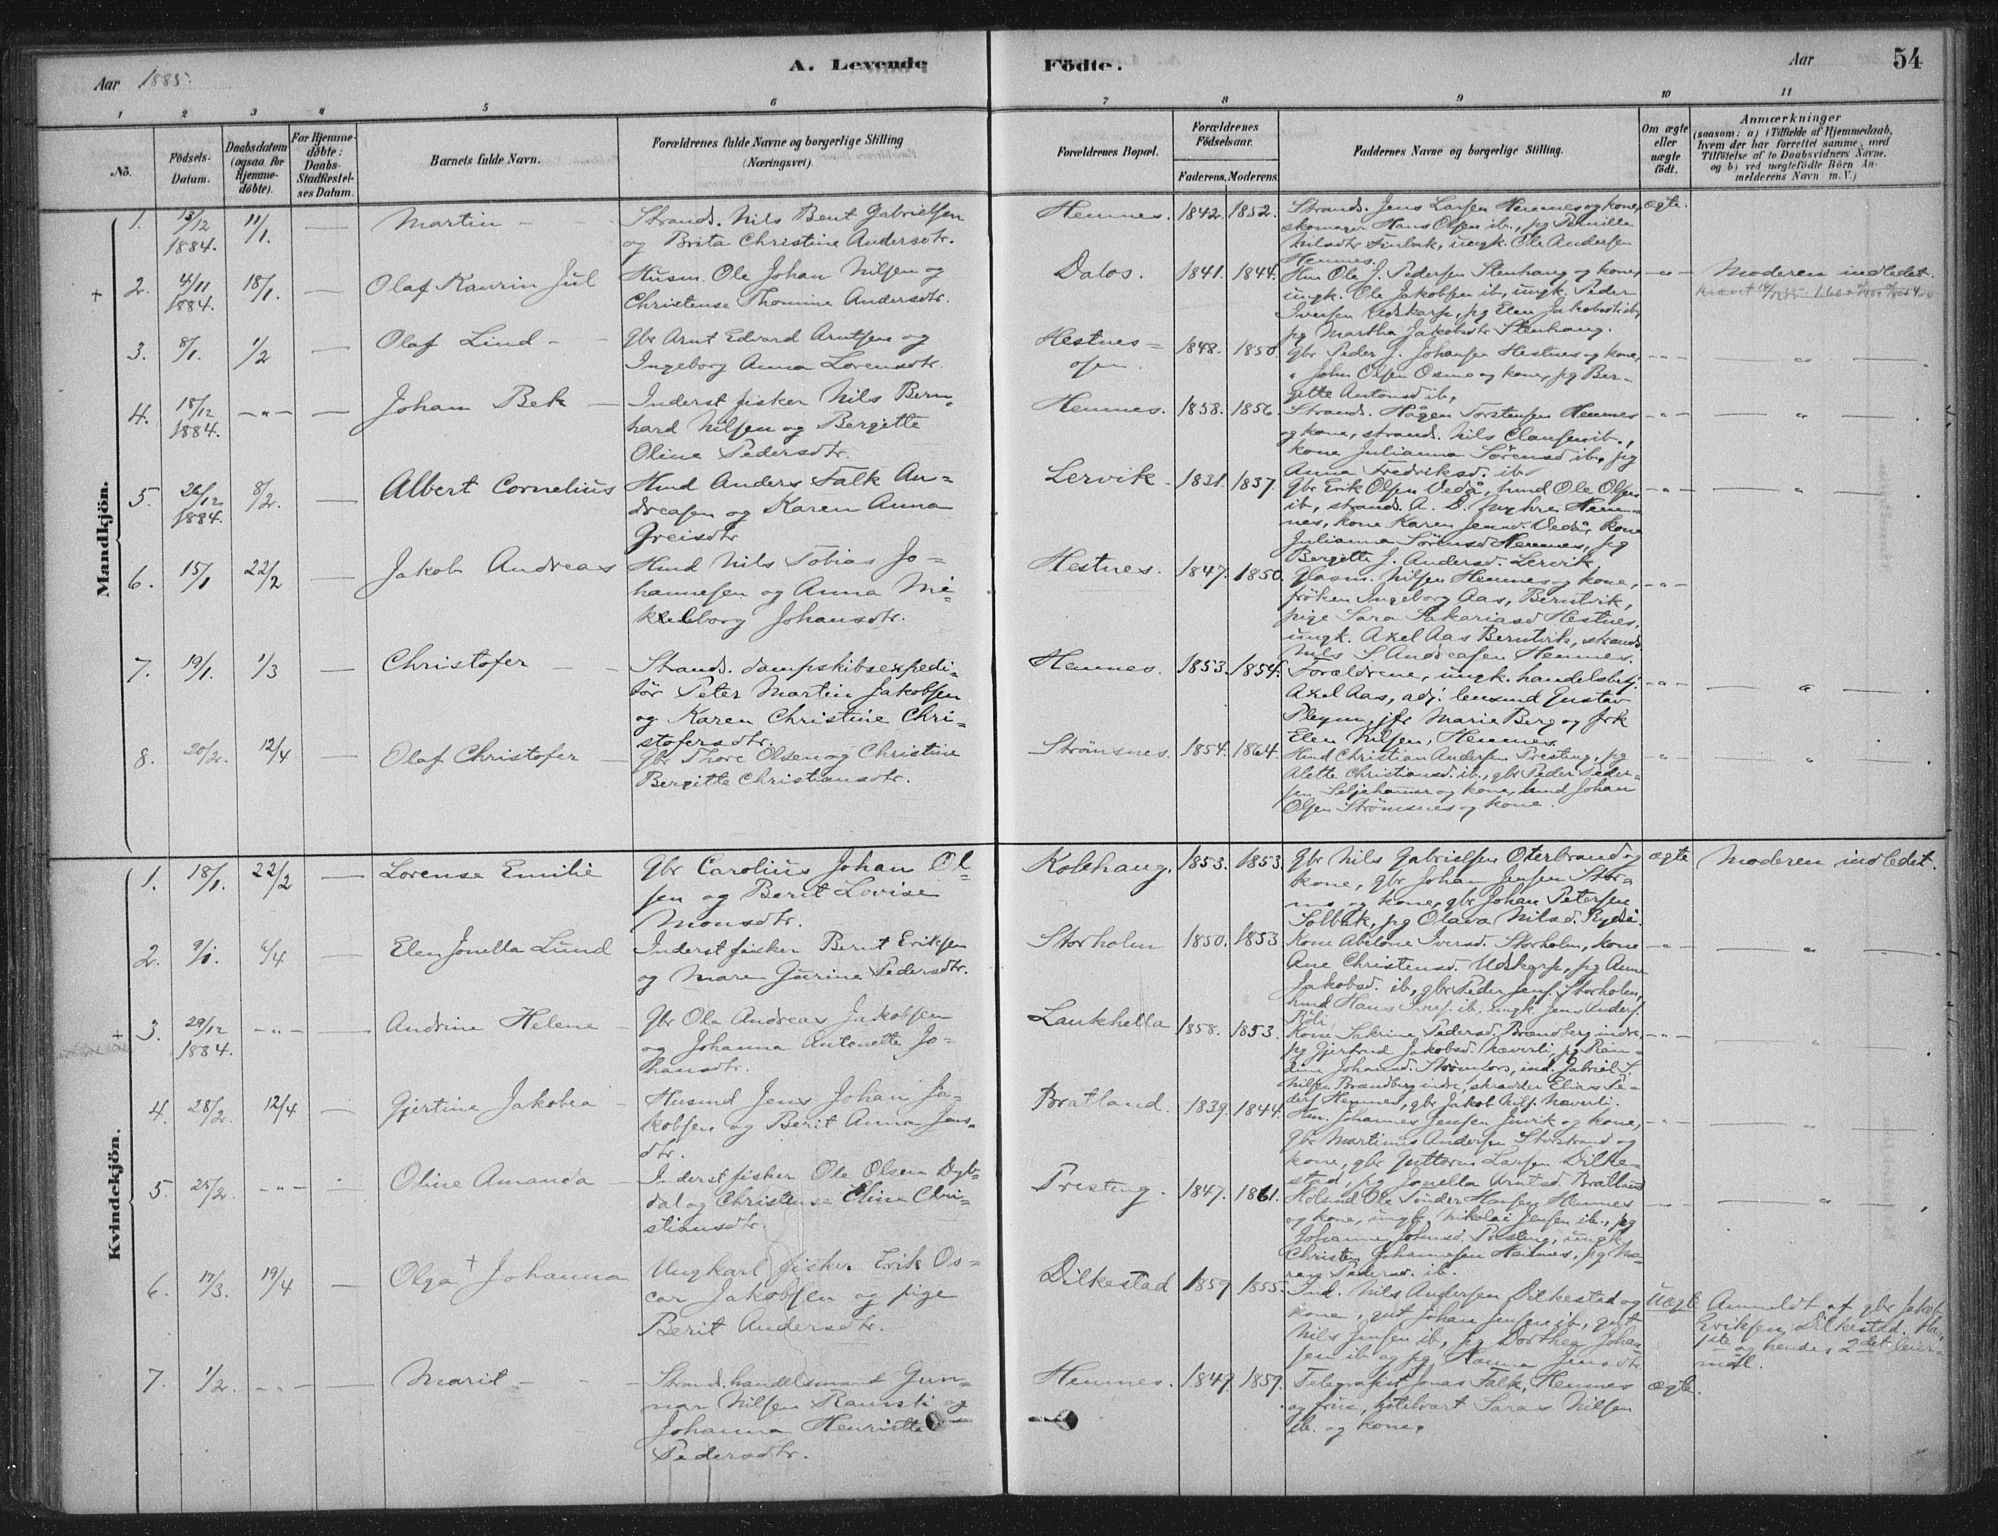 Aar 1885.
A. Levende Födte.
Aar 54
1 2 3 4 5 6 7 8 9 10 11
No.
Födsels-Datum.
Daabsdatum (ogsaa for Hjemmedöbte).
For Hjemmedöbte: Daabs Stadfæstelses Datum.
Barnets fulde Navn.
Forældrenes fulde Navne og borgerlige Stilling (Næringsvei).
Forældrenes Bopæl.
Forældrenes Födselsaar.
Faderens. Moderens.
Faddernes Navne og borgerlige Stilling.
Om ægte eller uægte födt.
Anmærkninger (saasom: a) i Tilfælde af Hjemmedaab, hvem der har forrettet samme, med Tilföielse af to Daabsvidners Navne, og b) ved uægtefödte Börn Anmelderens Navn m. V.)
Mandkjön.
1. 13/12 1884. 11/1. — Martin —
Strands. Nils Bent Gabrielsen
og Brita Christine Andersdtr.
Hemnes. 1842. 1852.
Strands. Jens Larsen Hemnes og kone,
skomager Hans Olsen ib., pg Pernille
Nilsdtr Finbak, ungk. Ole Andersen
Hemnes.
ægte.
+ 2. 4/11 1884. 18/1. — Olaf Kaurin Jul
Husm. Ole Johan Nilsen og
Christense Thomine Andersdtr.
Dalos. 1841. 1844.
Hm Ole J. Pedersen Stenhaug og kone,
ungk. Ole Jakobsen ib., ungk. Peder
Iversen Udskarp, pg Elen Jakobsdtr ib,
pg Martha Jakobsdtr Stenhaug.
-"- Moderen indledet.
3. 8/1. 1/2 — Olaf Lind —
Gbr Arnt Edvard Arntsen og
Ingeborg Anna Lorensdtr.
Hestnes=
osen. 1848. 1850.
Gbr Peder J. Johansen Hestnes og kone,
" John Olsen Osmo og kone, pg Ber-
gitte Antonsd ib.
-"- — " —
4. 18/12 1884. -"- — Johan Bek —
Inderst fisker Nils Bern=
hard Nilsen og Bergitte
Oline Pedersdtr.
Hemnes. 1858. 1856.
Strands. Hågen Torstensen Hemnes
og kone, strands. Nils Clausen ib.,
kone Julianna Sörensd ib., pg
Anna Fredriksd. ib.
-"- — " —
5. 26/12 1884. 8/2. — Albert Cornelius
Husmd Anders Falk An=
dreasen og Karen Anna
Greisdtr
Lervik. 1831. 1837.
Gbr Erik Olsen Vedå, husmd Ole Olsen
ib, strands. A. D. Myhre Hem=
nes, kone Karen Jensd. Vedå, kone
Julianna Sörensd Hemnes, pg
Bergitte J. Andersd. Lervik.
-"- — " —
6. 15/1 22/2 — Jakob Andreas
Husmd Nils Tobias Jo=
hannesen og Anna Mi=
kkelborg Johansdtr.
Hestnes. 1847. 1850.
Nilsen Hemnes og kone,
fröken Ingeborg Aas, Berntvik,
pige Sara Sakariasd Hestnes,
ungk. Axel Aas Berntvik, strands
Nils S. Andreasen Hemnes.
-"-
7. 19/1. 1/3 — Christofer —
Strands. dampskibsexpedi=
tör Peter Martin Jakobsen
og Karen Christine Chri=
stofersdtr.
Hemnes. 1853. 1854.
Forældrene, ungk. handelsbetj.
Axel Aas, adj. lensmd Gustav
Pleym, jfr Marie Berg og frk
Elen Nilsen, Hemnes.
-"- — " —
8. 20/2. 12/4 — Olaf Christofer —
Gbr Thore Olsen og Christine
Bergitte Christiansdtr.
Strömsnes. 1854. 1864.
Husmd Christian Andersen Presteng, pg
Alette Christiansd. ib., gbr Peder Peder=
sen Seljehammer og kone, husmd Johan
Olsen Strömsnes og kone.
-"- — " —
Kvindekjön.
1. 18/1. 22/2 — Lorense Emilie
Gbr Carolius Johan Ol=
sen og Berit Lovise
Monsdtr.
Kolshaug. 1853. 1853.
Gbr Nils Gabrielsen Oterbrand og
kone, gbr Johan Jensen Stor=
mo og kone, gbr Johan Petersen
Solbak, pg Olava Nilsd.
ægte Moderen indledet.
2. 9/1. 6/4 — Elen Jonella Lund
Inderst fisker Bernt Eriksen
og Maren Jurine Pedersdtr.
Storholm 1850. 1853
Kone Abelone Iversd. Storholm, kone
Ane Christensd. Udskarp, pg Anne
Jakobsd. ib, gbr Peder Jens. Storholm,
husmd Hans Ivers. ib, ungk. Jens Anders.
Röli
-"- — " —
+ 3. 29/12 1884. -"- — Andrine Helene —
Gbr Ole Andreas Jakobsen
og Johanna Antonette Jo=
hansdtr.
Laukhella 1858. 1853.
Kone Sakrine Pedersd. Brændberg indre,
pg Gjertrud Jakobsd. Næverli, pg
Johansd. Strömfors, ind. Gabriel S.
Nilsen Brændberg indre, skrædder Elias Pe-
ders Hemnes, gbr Jakob Nils. Næverli.
-"- — " —
4. 28/2. 12/4 — Gjertine Jakobea —
Husmd Jens Johan Ja=
kobsen og Berit Anna Jens=
dtr.
Bratland. 1839. 1844.
Hm. Johannes Jensen Juvik og kone,
gbr Martinus Andersen Storstrand og
kone, gbr Guttorm Larsen Dilke=
stad, pg Jonella Arntsd. Bratland
-"- — " —
5. 25/2. -"- — Oline Amanda —
Inderst fisker Ole Olsen Dyb=
dal og Christense Eline Chri=
stiansdtr.
Presteng. 1847. 1861.
Ole Tönder Hansen Hemnes
og kone, ungk. Nikolai Jensen ib., pg
Johanne Johnsd. Presteng, ungk.
Christen Johannesen Hemnes, pg Ma=
ren Pedersd. ib.
-"- — " —
6. 17/3. 19/4 — Olga + Johanna
Ungkarl fisker Erik Os=
car Jakobsen og pige
Berit Andersdtr.
Dilkestad 1859 1855.
Ind. Nils Andersen Dilkestad og
kone, gut Johan Jensen ib, gut
Nils Jensen ib, pg Dorthea Johan
sen ib og pg Hanna Jensdtr
Uægte Anmeldt af gbr Jakob
Eriksen Dilkestad. Hans
1ste og hendes 2det leier=
mål.
7. 1/2. -"- — Marit —
Strands. handelsmand Gun=
nar Nilsen Ramsli og
Johanna Henriette
Pedersdtr.
Hemnes. 1849. 1859.
Telegrafist Jonas Falk, Hemnes
og frue, hotelvært Saras Nilsen
ib. og kone.
ægte.